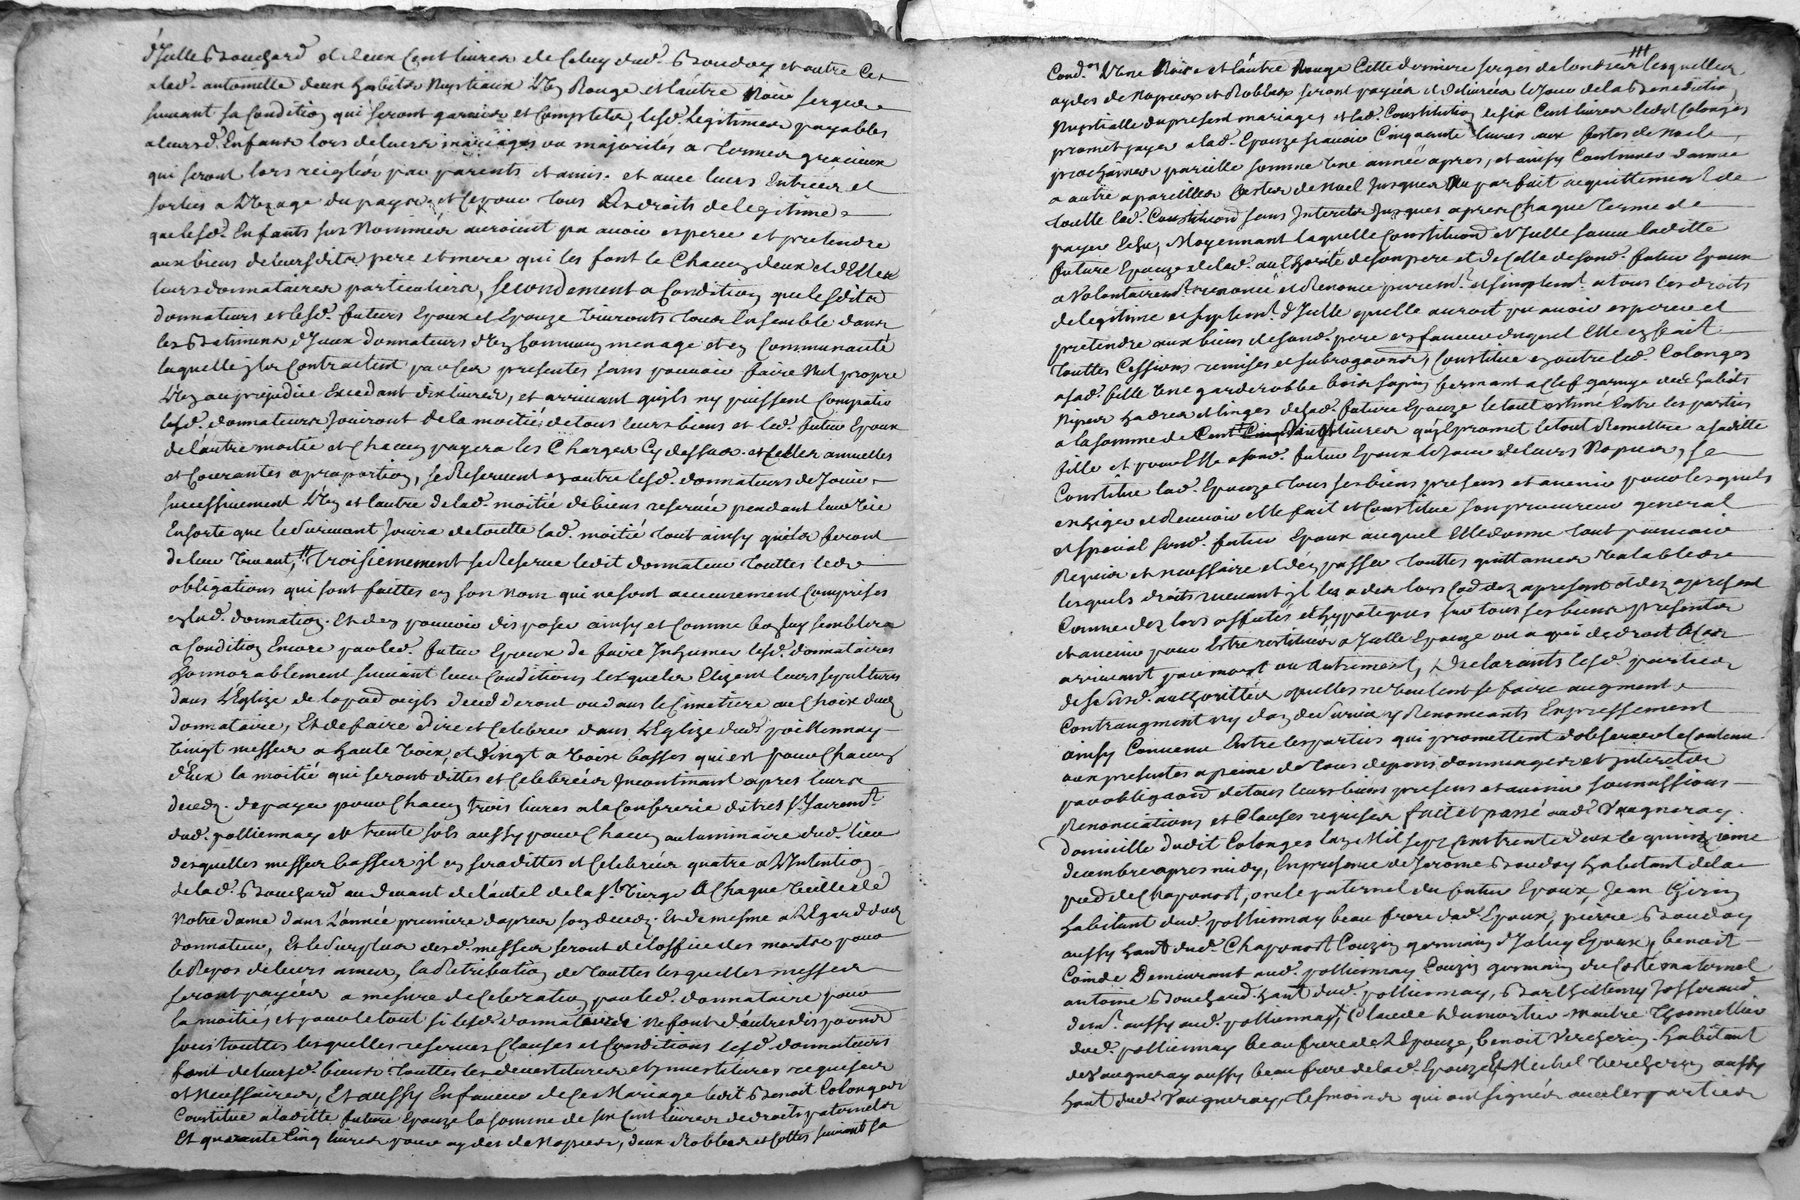 d'Jcelle Bouchard et deux Cent livres de Celuy dud. Boudoy et outre Ce
alad. antoinette deux habits Nuptiaux L'un Rouge et l'autre Noir serge
suivant sa Condition qui seront garnis et Complets, lesd. Legitimes payables
a leursd. Enfans lors de leurs mariages ou majorités a Termes gracieux
qui seront lors reiglés par parents et amis. et avec leurs Entrées et
sorties a L'uzage du pays et Ce pour tous Les droits de legitime
que lesd. Enfants sus Nommés auroient pu avoir esperer et pretendre
aux biens de leursdits pere et mere qui les font le Chacun d'eux et d'Elles
leurs donnataires particuliers, secondement a Condition que lesdits
donnateurs et lesd. futurs Epoux et Epouze vivront tous Ensemble dans
les Batiments d'Jceux donnateurs d'un Commun menage et en Communauté
laquelle jls Contractent par Ces presentes sans pouvoir faire Nul propre
L'un au prejudice Excedant dix livres, et arrivant qu'jls ny puissent Compatir
lesd. donnateurs Jouiront de la moitié de tous leurs biens et led. futur Epoux
de l'autre moitié et Chacun payera les Charges Cy dessus et Celles annuelles
et Courantes a proportion, se Reservent en outre lesd. donnateurs de Jouir
successivement L'un et l'autre de lad. moitié de biens reservée pendant leur vie
Ensorte que le Survivant Jouira de toutte lad. moitié tout ainsy qu'ils feront
de leur vivant, Troisiemement se Reserve ledit donnateur touttes les
obligations qui sont faittes en son Nom qui ne sont aucunement Comprises
en lad. donnation. Et d'en pouvoir disposer ainsy et Comme bon luy semblera
a Condition Encore par led. futur Epoux de faire Jnhumer lesd. donnataires
honnorablement suivant leur Conditions lesquels Elizent leurs sepultures
dans L'Eglize de la par. ou jls decederont ou dans le Cimetiere au Choix dud.
donnataire, Et de faire dire et Celebrer dans L'Eglize dud. pollionnay
vingt messes a haute voix, et vingt a voix basses qui est pour Chacun
d'Eux la moitié qui seront dittes et Celebrées Jncontinant apres leurs
deceds. de payer pour Chacun trois livres a la Confrerie du tres St. Sacremt.
dud. pollionnay et trente sols aussy pour Chacun au luminaire dud. lieu
desquelles messes basses jl en sera dittes et Celebrées quatre a L'Intention
de lad. Bouchard au devant de l'autel de la Ste. Vierge a Chaque veille de
Notre dame dans L'année premiere d'apres son deceds. Et de mesme a L'Egard dud.
donnateur, Et le Surplus desd. messes seront de l'office des morts pour
le Repos de leurs ames, la Retribution de touttes lesquelles messes
seront payées a mesure de Celebration par led. donnataire pour
la moitié, et pour le tout si lesd. donnateurs ne font d'autres dispoons.
sous touttes lesquelles reserves Clauses et Conditions lesd. donnateurs
font de leursd. biens touttes les devestitures et jnvestitures requises
et Necessaires, Et aussy En faveur de Ce Mariage ledit Benoit Colonges
Constitue a laditte future Epouze la somme de six Cent livres de droits paternels
Et quarante Cinq livres pour aydes de Nopces, deux Robbes et Cottes suivant sa
Condon. L'une Noire et l'autre Rouge Cette derniere serge de londres lesquelles
aydes de Nopces et Robbes seront payées et delivrées le Jour de la Benediction
Nuptialle du present mariage, et lad. Constitution de six Cent livres ledit Colonges
promet payer a lad. Epouze sçavoir Cinquante livres aux festes de Noel
prochaines pareille somme Une année apres, et ainsy Continuer d'année
a autre a pareilles festes de Noel Jusques Au parfait acquittement de
toutte lad. Constitution sans Interets Jusques apres Chaque terme de
payer Echu, Moyennant laquelle Constitution d'Jcelle somme laditte
future Epouze de lad. authorité de son pere et de Celle de sond. futur Epoux
a volontairemt. renoncé et Renonce puremt. et simplemt. a tous les droits
de legitime et suplemt. d'Jcelle quelle auroit pu avoir esperer et
pretendre aux biens de sond. pere en faveur duquel Elle en fait
touttes Cessions remises et subrogaons, Constitue en outre led. Colonges
a sad. fille Une garderobbe bois sapin fermant a Clef garnye des habits
Nipes hardes et linges de lad. future Epouze le tout estimé Entre les parties
a la somme de Cent livres qu'jl promet le tout Remettre a sa ditte
fille et pour Elle a sond. futur Epoux le Jour de leurs Nopces, se
Constitue lad. Epouze tous ses biens presens et avenir pour lesquels
exziger et Recevoir elle fait et Constitue son procureur general
et special sond. futur Epoux auquel Elle donne tout pouvoir
Requis et necessaire et d'en passer touttes quittances valables
lesquels droits recevant jl les a des lors Comme des apresent et des apresent
Comme des lors assurés et hypoteques sur tous ses biens presents
et avenir pour Estre restitués a Jcelle Epouze ou a qui de droit le Cas
arrivant par mort ou Autrement, Declarants lesd. parties
desd. authoritées quelles ne veulent se faire augment
Contraugment ny don de Survie y Renonceants Expressement
ainsy Convenu Entre les parties qui promettent d'observer le Contenu
aux presentes a peine de tous depens dommages et interets
par obligaon. de tous leurs biens presens et avenir soumissions
Renonciations et Clauses requises fait et passé aud. Vaugneray
domicille dudit Colonges L'an Mil sept Cent trente deux le quinzieme
decembre apres midy, En presence de Jerome Boudoy habitant de la
par. de Chaponost, oncle paternel du futur Epoux, Jean
habitant dud. pollionnay beau frere dud. Epoux, pierre Boudoy
aussy hant. dud. Chaponost Couzin germain d'Jceluy Epoux, benoit
Coinde Demeurant aud. pollionnay Couzin germain du Coté maternel
antoine Bouchard hant. dud. pollionnay, Barthelemy Josserand
demt. aussy aud. pollionnay, Claude Dumortier maitre Thonnellier
dud. pollionnay beau frere de L'Epouze, benoit Vercherin habitant
de Vaugneray aussy beau frere de lad. Epouze, Et Michel Vercherin aussy
hant. dud. Vaugneray, tesmoins qui ont signés avec les parties